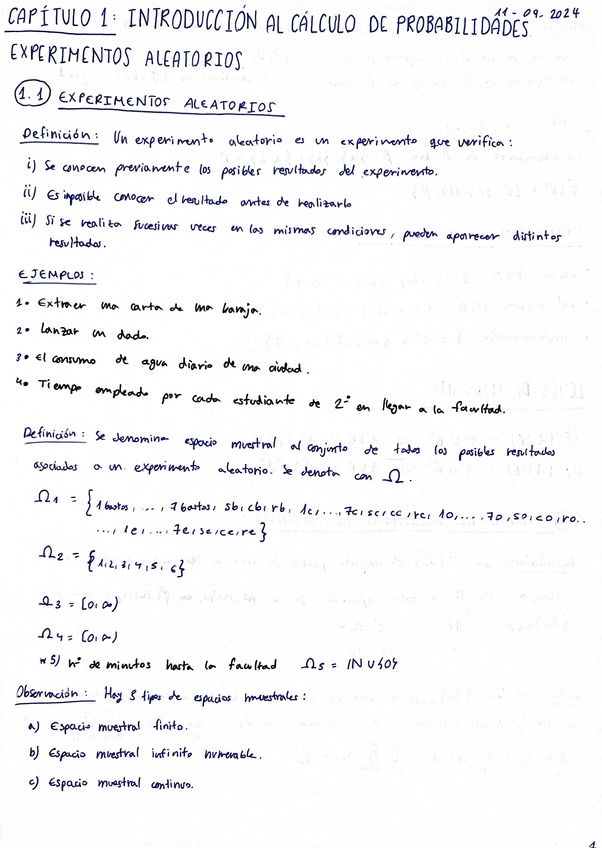 11-09-2024
CAPÍTULO 1: INTRODUCCIÓN AL CÁLCULO DE PROBABILIDADES
EXPERIMENTOS ALEATORIOS
1.1 EXPERIMENTOS ALEATORIOS
Definición: Un experimento aleatorio es un experimento que verifica:
i) Se conocen previamente los posibles resultados del experimento.
ii) Es imposible conocer el resultado antes de realizarlo
iii) Si se realiza sucesivas veces en las mismas condiciones, pueden aparecer distintos
resultados.
EJEMPLOS:
1. Extraer una carta de una baraja.
2. Lanzar un dado.
3. El consumo de agua diario de una ciudad.
4. Tiempo empleado por cada estudiante de 2º en llegar a la facultad.
Definición: Se denomina espacio muestral al conjunto de todos los posibles resultados
asociados a un experimento aleatorio. Se denota con Ω.
Ω1 = {1bastos, ..., 7bastos, sb, cb, rb, 1c, ..., 7c, sc, cc, rc, 1o, ..., 7o, so, co, ro..
..., 1e, ... 7e, se, ce, re}
Ω2 = {1, 2, 3, 4, 5, 6}
Ω3 = [0, ∞)
Ω4 = [0, ∞)
* 5) nº de minutos hasta la facultad Ω5 = ℕ ∪ {0}
Observación: Hay 3 tipos de espacios muestrales:
a) Espacio muestral finito.
b) Espacio muestral infinito numerable.
c) Espacio muestral continuo.
1